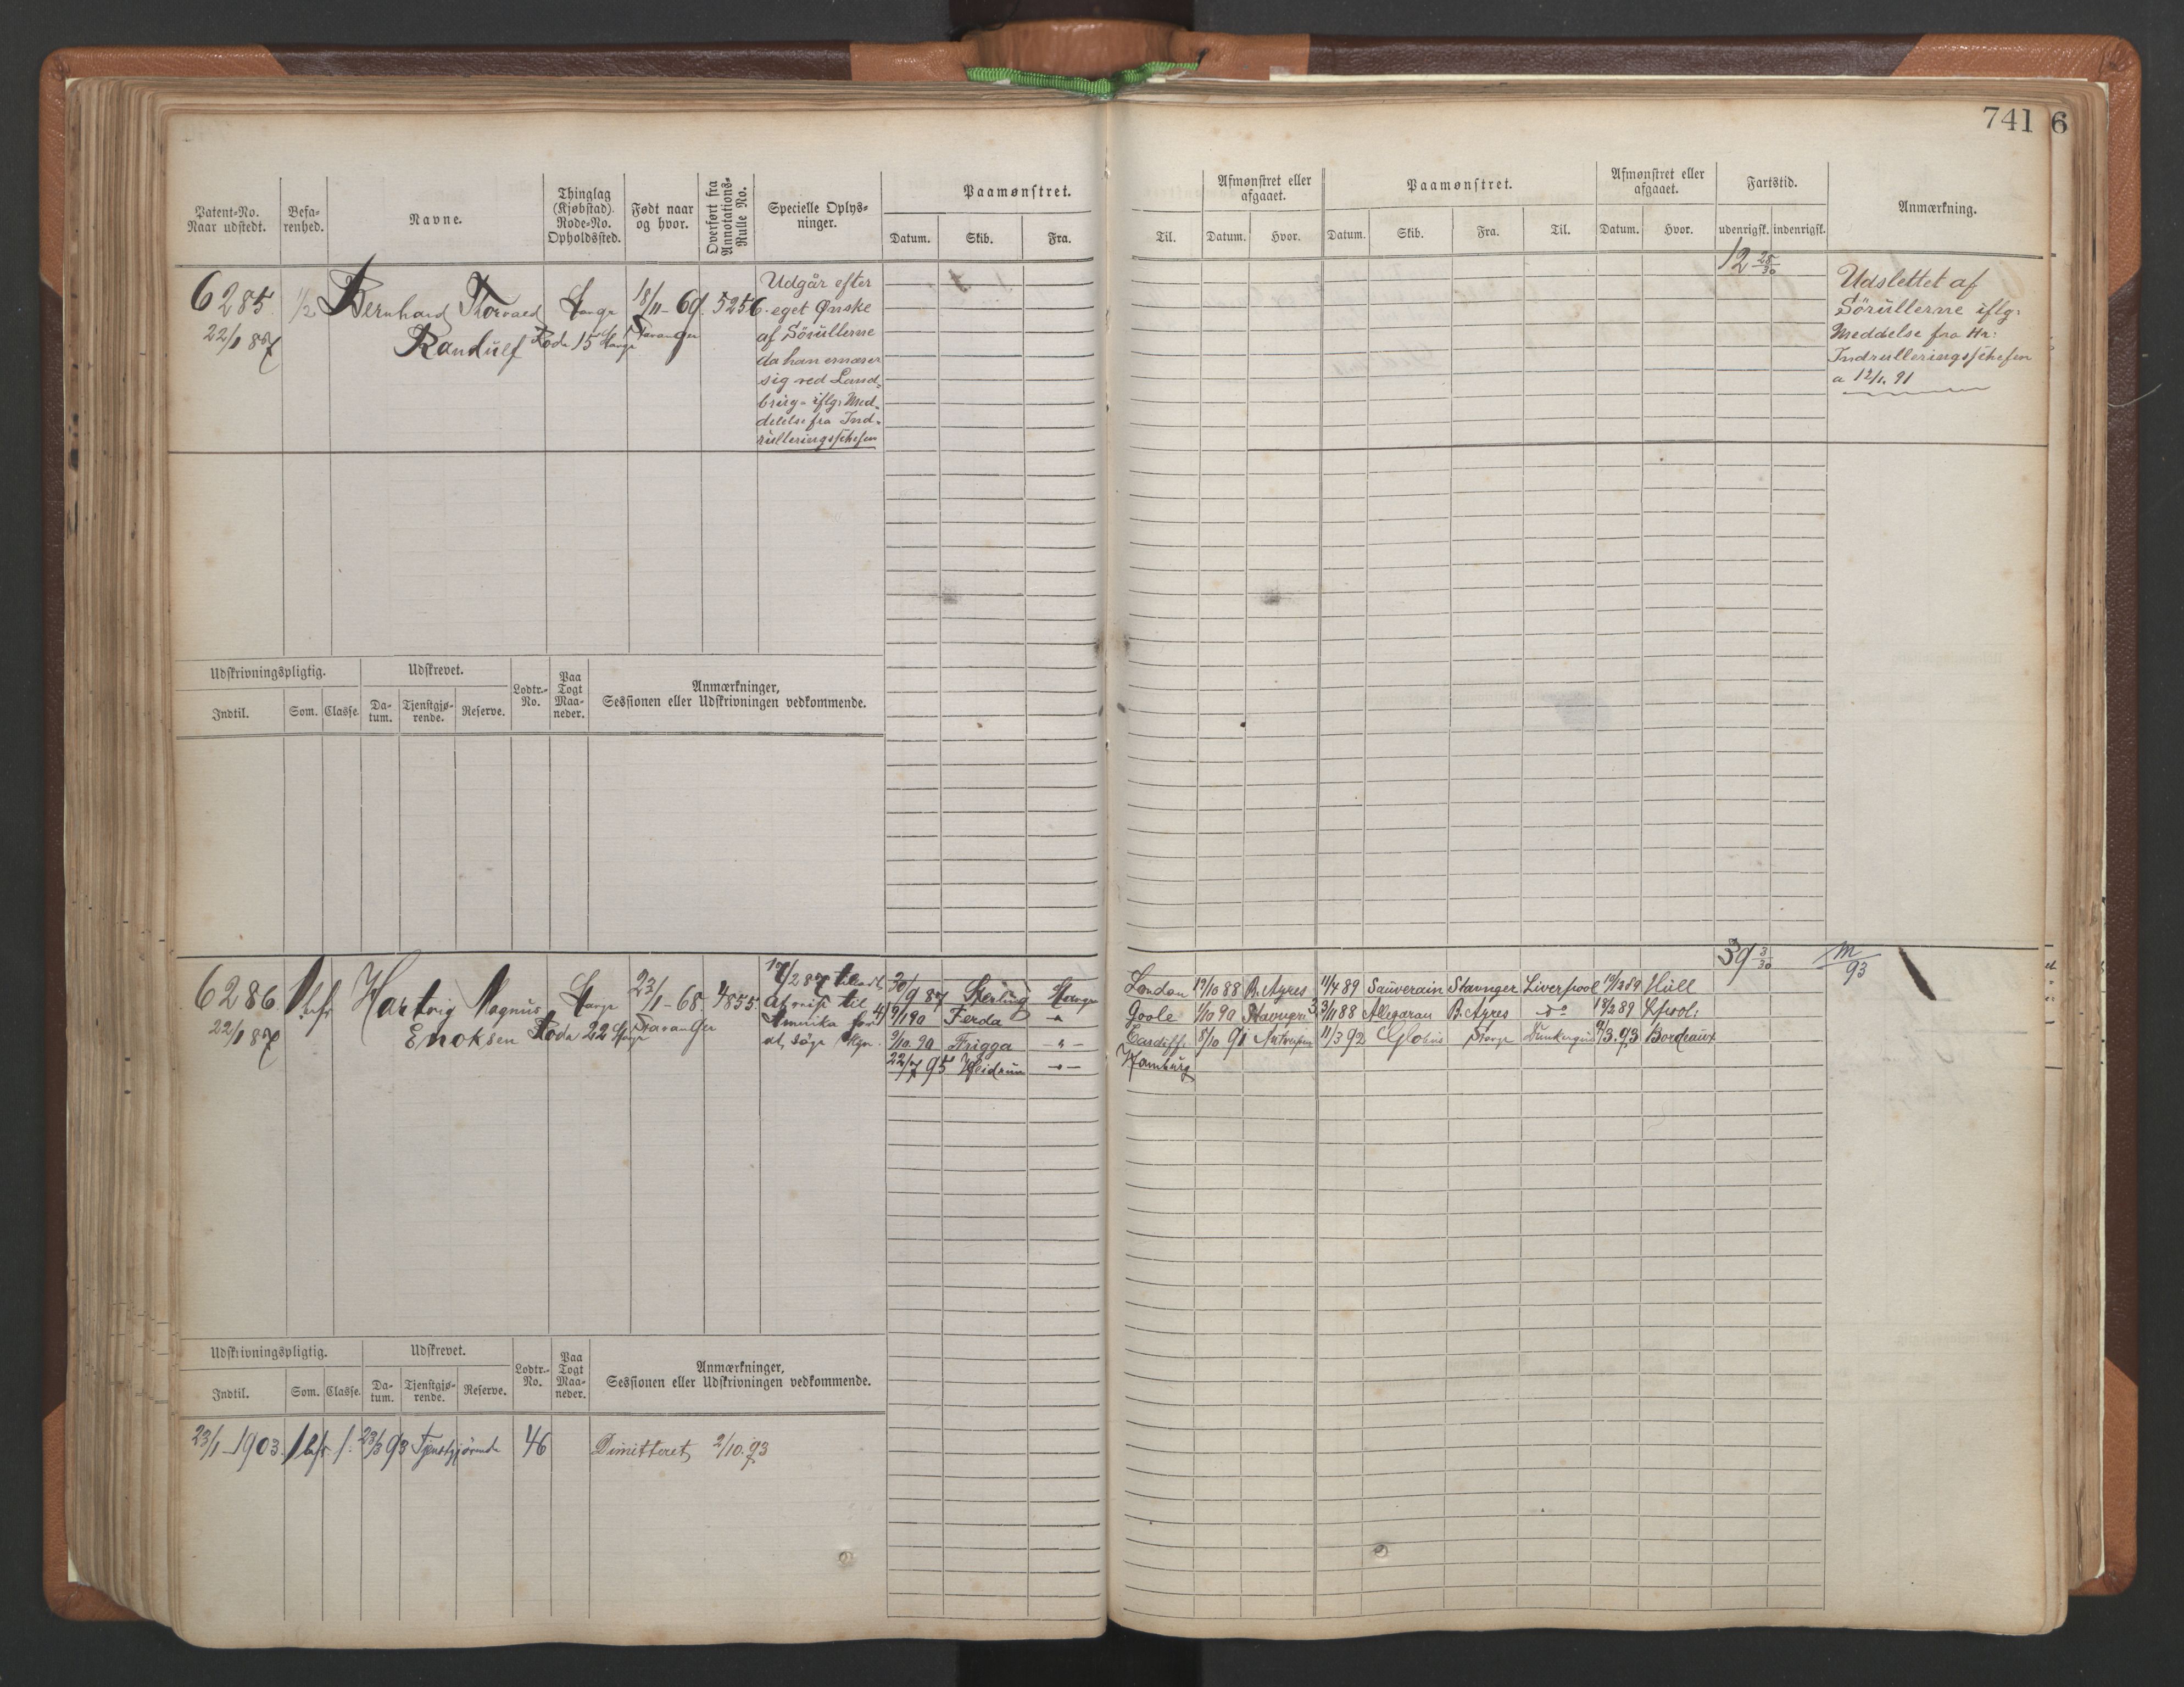 741 6
Patent-No. Naar udstedt.
Befarenhed.
Navne.
Thinglag (Kjøbstad). Rode-No. Opholdssted.
Født naar og hvor.
Overført fra Annotations-Rulle No.
Specielle Oplysninger.
Paamønstret.
Datum. Skib. Fra. Til.
Afmønstret eller afgaaet.
Datum. Hvor.
Paamønstret.
Datum. Skib. Fra. Til.
Afmønstret eller afgaaet.
Datum. Hvor.
Fartstid.
udenrigsk. indenrigsk.
Anmærkning.
6285. 1/2 Bernhard Thorvald
22/1 87 Randulf
Rode 15
Stavanger
18/11-69
5256
Udgår efter
eget Ønske
af Sörullerne
da han ernærer
sig ved Land-
brug- iflg. Med-
delelse fra Ind-
rulleringschefen
12 25/30
Udslettet af
Sörullerne iflg.
Meddelse fra Hr.
Indrulleringschefen
a 12/1. 91
Udskrivningspligtig. Udskrevet. Lodtr.-No. Paa Togt Maaneder. Anmærkninger, Sessionen eller Udskrivningen vedkommende.
Indtil. Som. Classe. Datum. Tjenstgjørende. Reserve.
6286 Hartvig Magnus
22/1 87 Enoksen
Rode 22
Stavanger
23/1-68. 4855
Amerika for
at söge Hyre.
39 3/30
m/93
30/9 87 Sterling Stavgr London 19/10 88 B. Ayres 11/4 89 Sauverain Stavnger Liverpool Hull
Ferda Goole 1/10 90 Stavngr 3/11 88 B. Ayres do 18/2 89
9/10. 90 Frigga -"- Cardiff 8/10 91 Antverpen 11/3 92 Globus Stavgr 9/3. 93 Bordeaux
22/7 95 Heidrun -"- Hamburg
Udskrivningspligtig. Udskrevet. Lodtr.-No. Paa Togt Maaneder. Anmærkninger, Sessionen eller Udskrivningen vedkommende.
Indtil. Som. Classe. Datum. Tjenstgjørende. Reserve.
23/1-1903. 1. 23/3 93 Tjenstgjørende 46 Dimitteret 2/10. 93